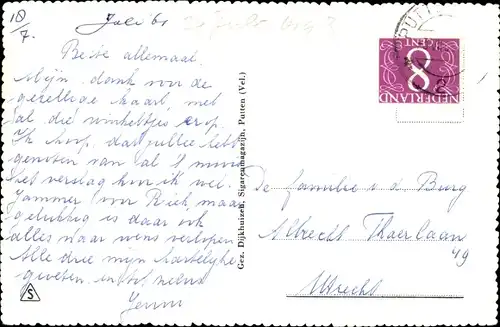 10/7.
Juli 61
Beste allemaal.
Mijn dank voor de
gezellige kaart, met
al die winkeltjes erop.
Ik hoop dat jullie hebt
genoten van al 't moois
het verslag hoor ik wel.
Jammer voor Riek, maar
gelukkig is daar ook
alles naar wens verlopen
Alle drie mijn hartelijke
groeten en tot ziens
S
Gez. Dijkhuizen, Sigarenmagazijn, Putten (Vel.)
PUTT
8
CENT
NEDERLAND
De familie v. d. Burg
Albrecht Thaerlaan
49
Utrecht